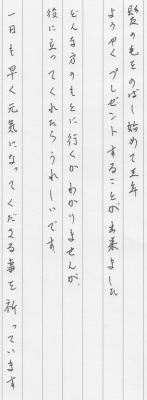 髪の毛をのばし始めて五年
ようやくプレゼントすることが出来ました
どんな方のもとに行くかわかりませんが、
役に立ってくれたらうれしいです
一日も早く元気になってくださる事を祈っています